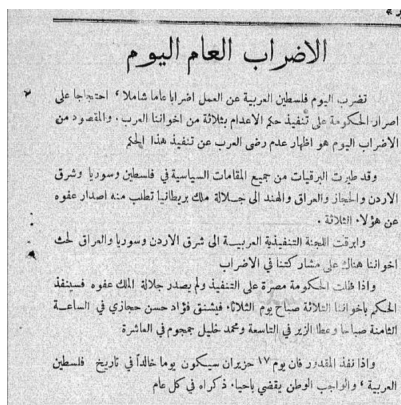 الاضراب العام اليوم
تضرب اليوم فلسطين العربية عن العمل اضرابا عاما شاملا ، احتجاجا على
اصرار الحكومة على تنفيذ حكم الاعدام بثلاثة من اخواننا العرب . والمقصود من
الاضراب اليوم هو اظهار عدم رضى العرب عن تنفيذ هذا الحكم
وقد طيرت البرقيات من جميع المقامات السياسية في فلسطين وسوريا وشرق
الاردن والحجاز والعراق والهند الى جلالة ملك بريطانيا تطلب منه اصدار عفوه
عن هؤلاء الثلاثة .
وابرقت اللجنة التنفيذية العربية الى شرق الاردن وسوريا والعراق لحث
اخواننا هناك على مشاركتنا في الاضراب
واذا ظلت الحكومة مصرة على التنفيذ ولم يصدر جلالة الملك عفوه فسينفذ
الحكم باخواننا الثلاثة صباح يوم الثلاثاء فيشنق فؤاد حسن حجازي في الساعة
الثامنة صباحا وعطا الزير في التاسعة ومحمد خليل جمجوم في العاشرة
واذا نفذ المقدور فان يوم ١٧ حزيران سيكون يوما خالداً في تاريخ فلسطين
العربية ، والواجب الوطن يقضي باحياء ذكراه في كل عام